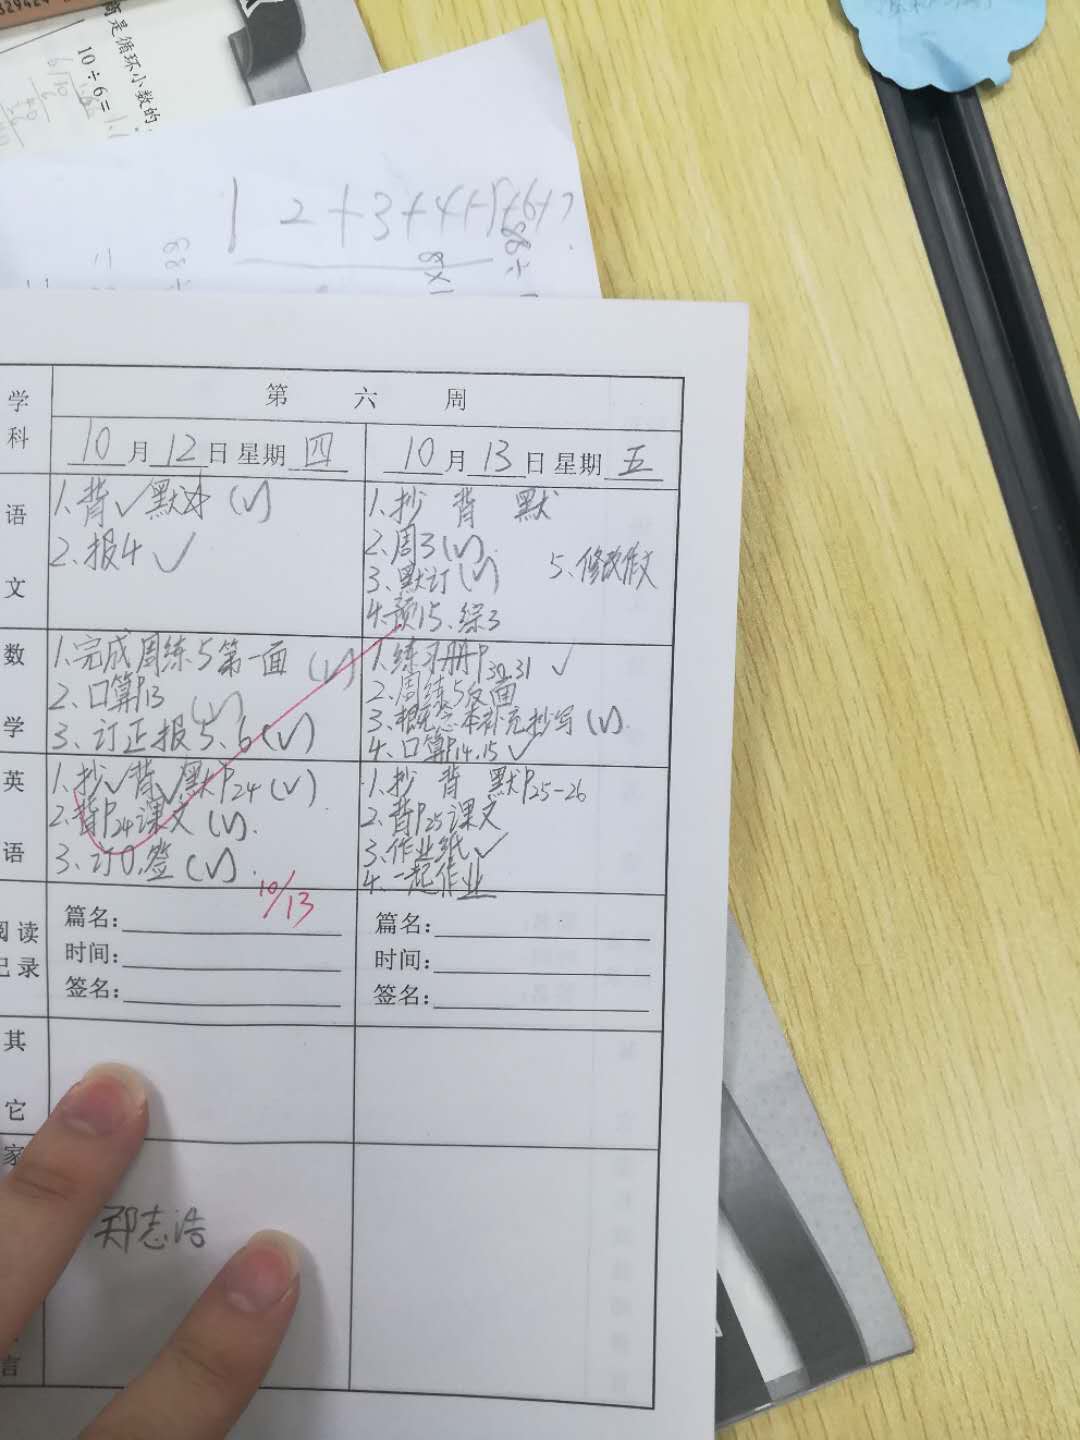 商是循环小数的
10÷6=1.
1 2+3+4+5+6+?
学科
第 六 周
10月12日 星期四
10月13日 星期五
语文
1.背√默 (√)
2.报4 √
1.抄 背 默
2.周3(√)
3.默订(√)
4.预15、综3
5.修改作文
数学
1.完成周练5第一面 (√)
2.口算P13 (√)
3.订正报5、6(√)
1.练习册P30,31 √
2.周练5反面
3.概念本补充抄写(√).
4.口算P14,15√
英语
1.抄√背√默P24(√)
2.背P24课文 (√).
3.订0,签(√).
10/13
1.抄 背 默P25-26
2.背P25课文
3.作业纸√
4.一起作业
阅读记录
篇名:
时间:
签名:
篇名:
时间:
签名:
其它
家
郑志浩
言